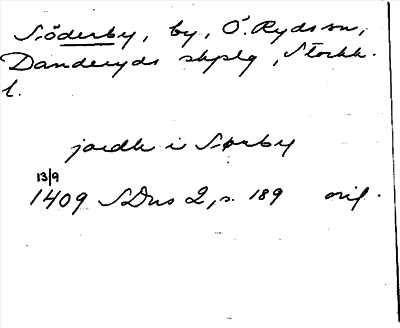 Söderby, by, Ö. Ryds sn,
Danderyds skplg, Stockh.
l.
jordh i Sørby
13/9
1409 SDns 2, s. 189 orig.